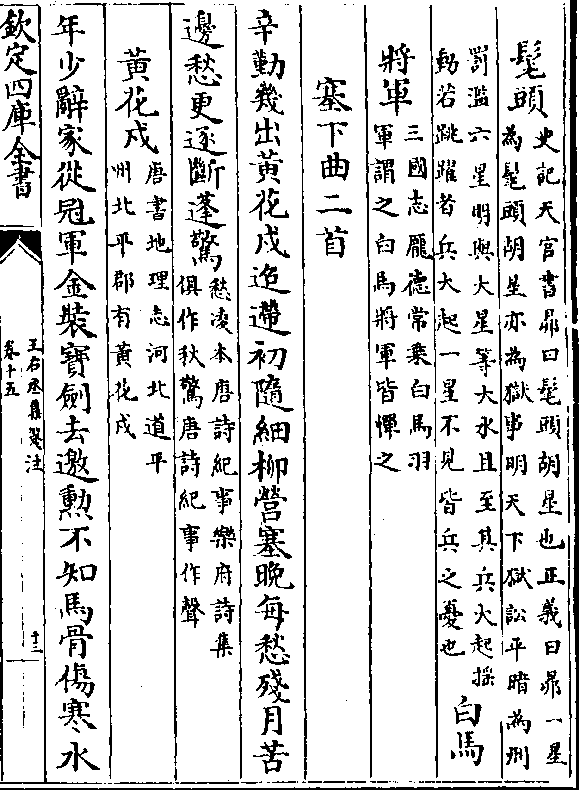 髦頭
史記天官書昴曰髦頭胡星也正義曰昴一星
為髦頭胡星亦為獄事明天下獄訟平暗為刑
罰濫六星明與大星等大水且至其兵大起揺
動若跳躍者兵大起一星不見皆兵之憂也
白馬
將軍
三國志龎德常乗白馬羽
軍謂之白馬將軍皆憚之
塞下曲二首
辛勤幾出黄花戍迢遰初隨細柳營塞晚每愁殘月苦
邊愁更逐斷蓬驚
愁凌本唐詩紀事樂府詩集
俱作秋驚唐詩紀事作聲
黄花戍
唐書地理志河北道平
州北平郡有黄花戍
年少辭家從冠軍金裝寳劍去邀勲不知馬骨傷寒水
欽定四庫全書
王右丞集箋注
卷十五
十三